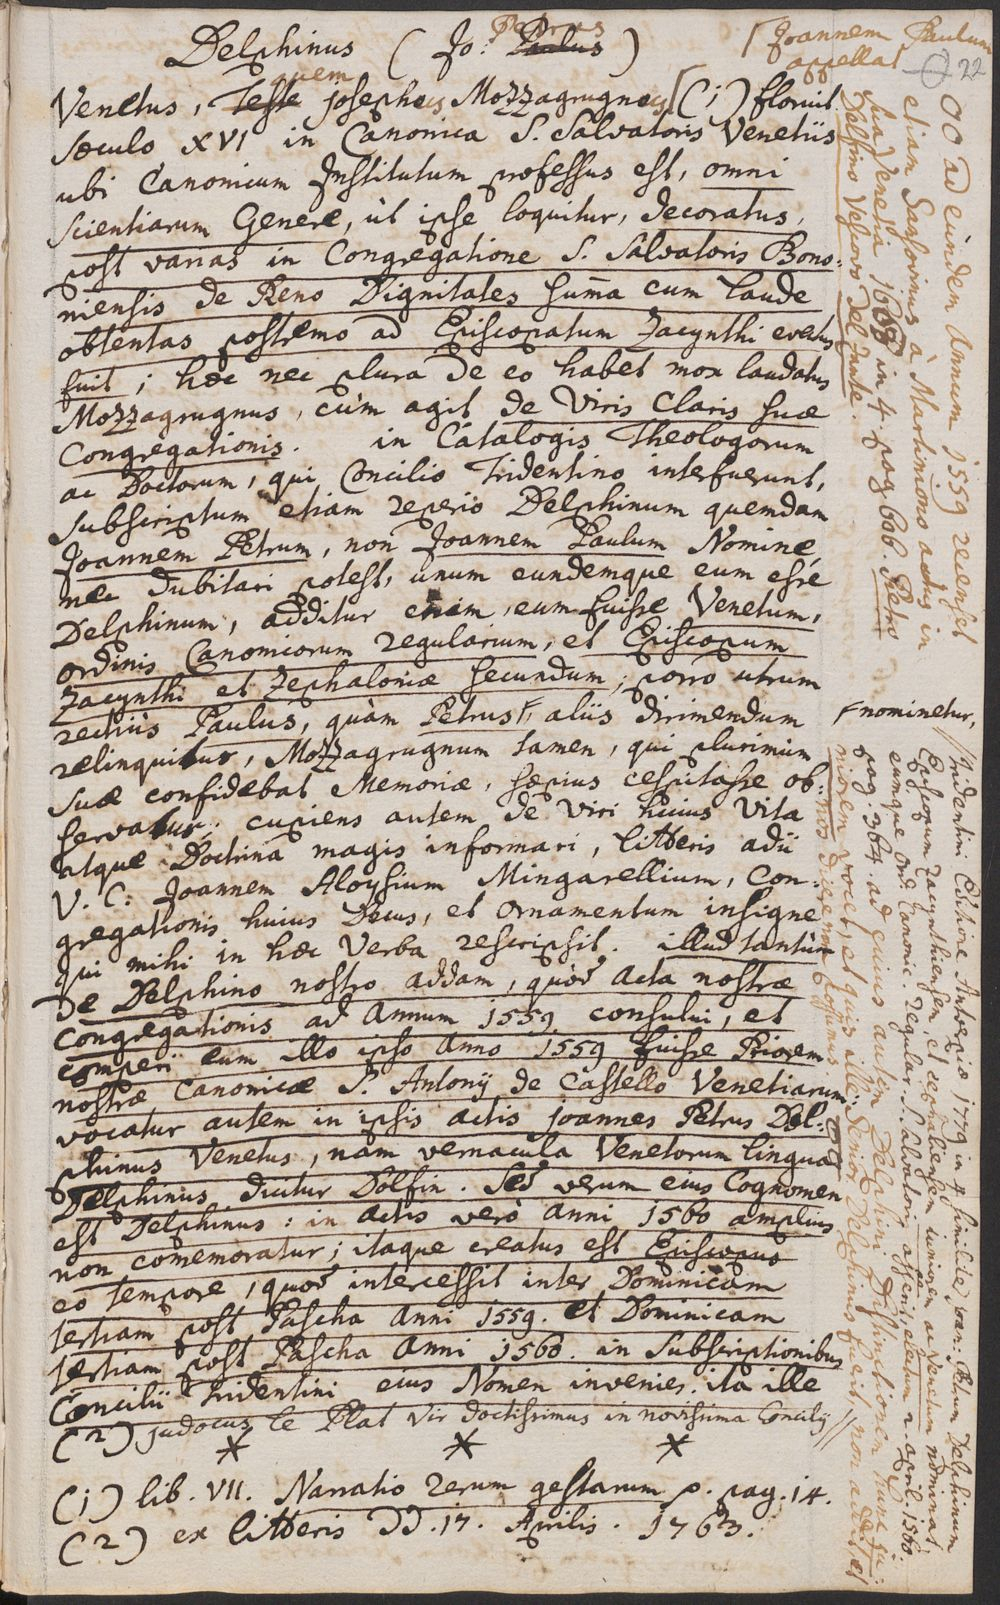 Delphinus ( Jo: Petrus Paulus )
[ Joannem Paulum
appellat
22
Venetus, quem Teste Josephus Mozzagrugnus [ (1) floruit
Sæculo XVI in Canonica S. Salvatoris Venetiis
ubi Canonicum Institutum professus est, omni
scientiarum Genere, ut ipse loquitur, decoratus,
post varias in Congregatione S. Salvatoris Bono-
niensis de Reno Dignitates suma cum laude
obtentas postremo ad Episcopatum Zacynthi evectus
fuit; hæc nec plura de eo habet mox laudatus
Mozzagrugnus, cùm agit de Viris Claris suæ
Congregationis. in Catalogis Theologorum
ac Doctorum, qui Concilio Tridentino interfuerunt,
subscriptum etiam reperio Delphinum quemdam
Joannem Petrum, non Joannem Paulum Nomine,
nec dubitari potest, unum eundemque eum esse
Delphinum, additur enim, eum fuisse Venetum,
ordinis Canonicorum regularium, et Episcopum
Zacynthi et Zephaloniæ secundum; porro utrum
rectiùs Paulus, quàm Petrus, aliis dirimendum
relinquitur, Mozzagrugnum tamen, qui plurimum
suæ confidebat Memoriæ, sæpius cespitasse ob-
servatur. cupiens autem de Viri huius Vita
atque Doctrina magis informari, litteris adii
V. C. Joannem Aloysium Mingarellium, Con-
gregationis huius Decus, et ornamentum insigne
qui mihi in hæc Verba rescripsit. illud tantùm
de Delphino nostro addam, quòd acta nostræ
Congregationis ad Annum 1559. consului, et
comperi eum illo ipso Anno 1559 fuisse Priorem
nostræ Canonicæ S. Antonij de Castello Venetiarum
vocatur autem in ipsis actis Joannes Petrus Dol-
phinus Venetus, nam vernacula Venetorum lingua
Delphinus dicitur Dolfin. Sed verum eius Cognomen
est Delphinus: in Actis verò Anni 1560 amplius
non comemoratur; itaque creatus est Episcopus
eo tempore, quod intercessit inter Dominicam
tertiam post Pascha Anni 1559. et Dominicam
tertiam post Pascha Anni 1560. in Subscriptionibus
Concilii Tridentini eius Nomen invenies. ita ille
(2) Judocus le Plat Vir doctissimus in novissima Concilij
* * *
(1) lib. VII. Narratio rerum gestarum p. pag. 14.
(2) ex litteris DD. 17. Aprilis. 1763.
ad eundem Annum 1559 recenset
etiam Sansovinus à Martiniono auctus in
sua Venetia 1668 in 4 pag. 606. Pietro
Dolfino Vescovo del Zante.
nominetur,
Tridentini Editione Antverpiæ 1779 in 4 similiter Joan: Petrum Delphinum
Episcopum Zacynthiensem, et Cephaliensem iuniorem ac Venetum nominat,
eumque Ord. Canonic. Regular. S. Salvatoris asserit, electum 2 april. 1560.
pag. 364. ad cuius autem Delphini distinctionem hunc iu-
niorem vocet, et quis ille senior Delphinus fuerit, non dicit et